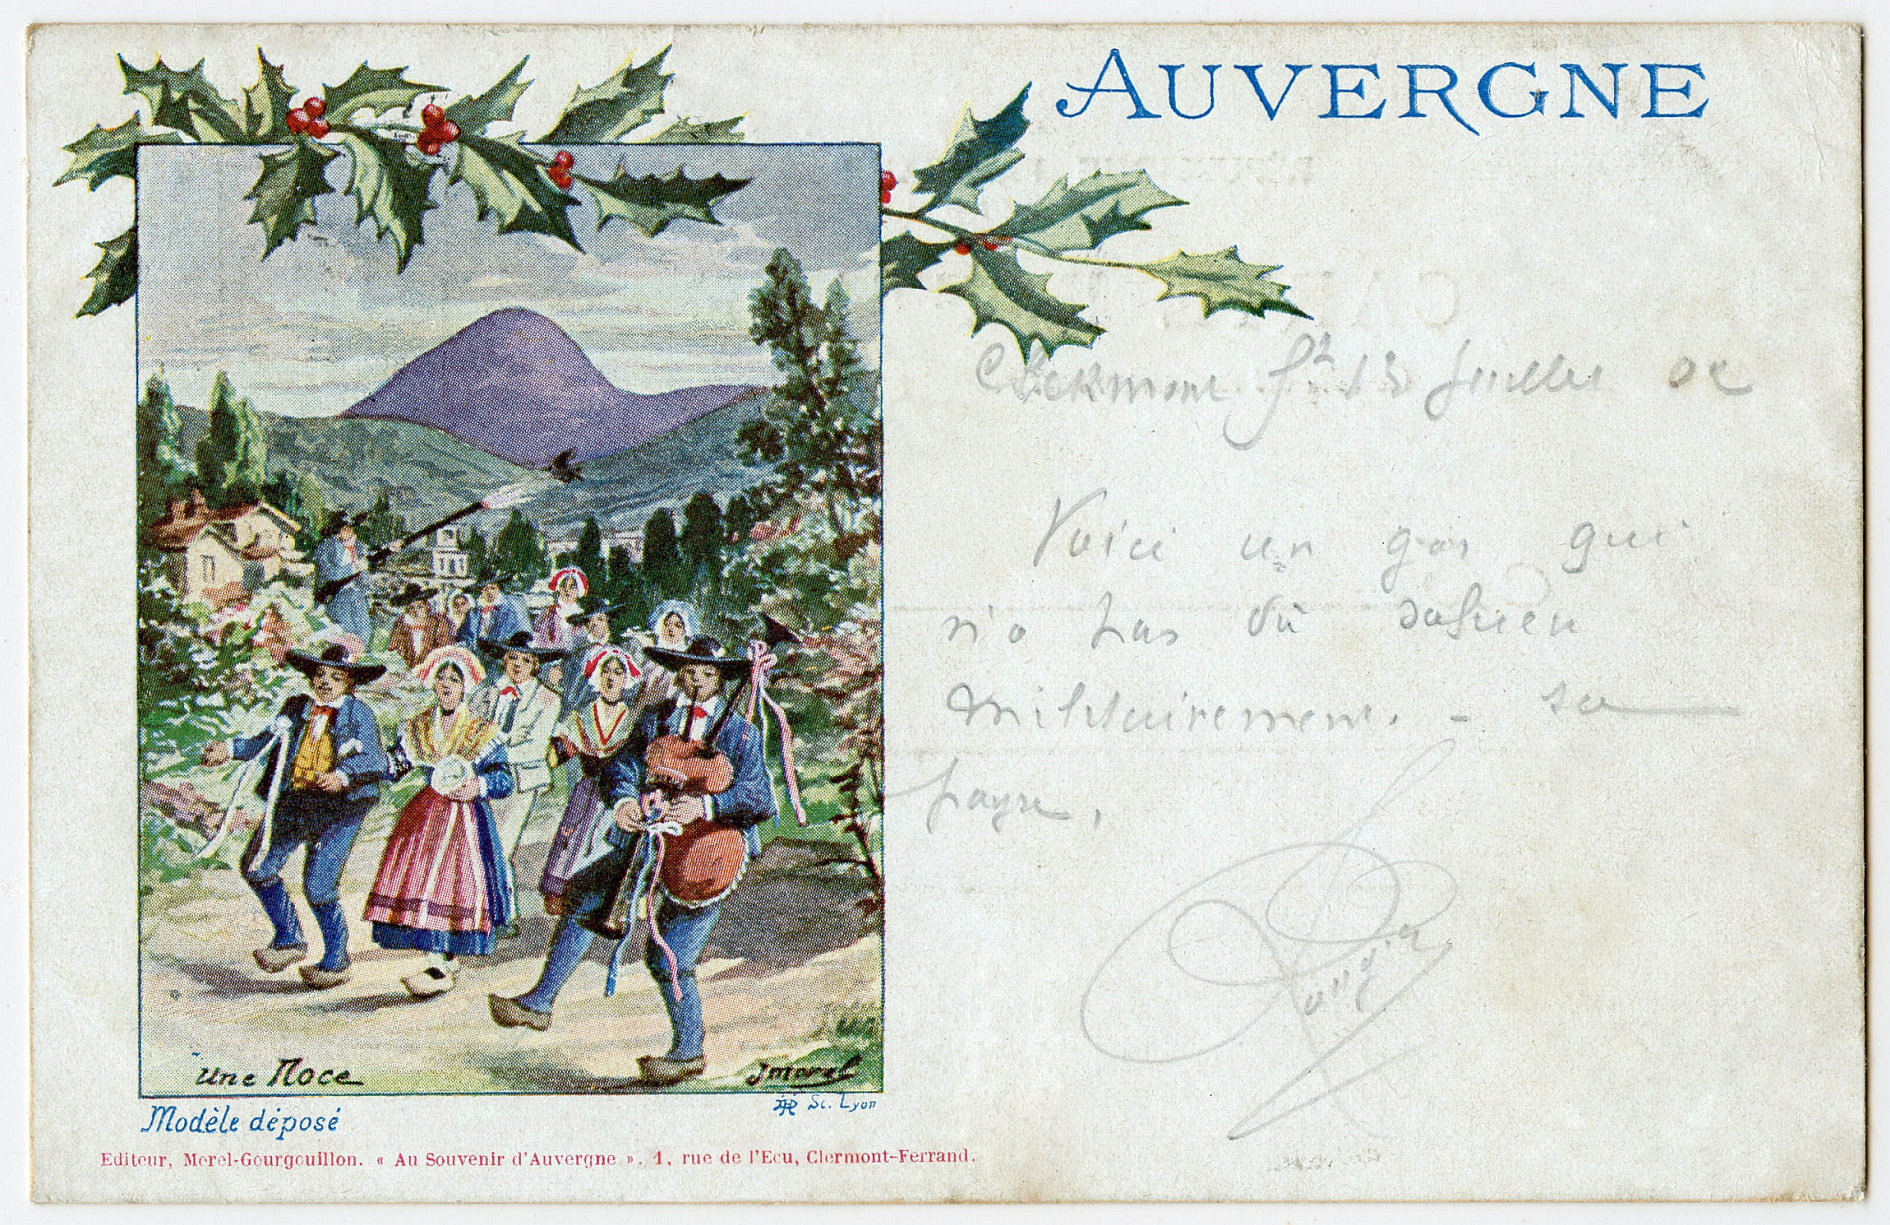 AUVERGNE
Clermont Ft 13 Juillet 02
Voici un gas qui
n'a pas dû
militairement. - sa
paye.
une Noce
JMorel
Modèle déposé
Sc. Lyon
Editeur, Morel-Gourgouillon. « Au Souvenir d'Auvergne ». 1, rue de l'Ecu, Clermont-Ferrand.